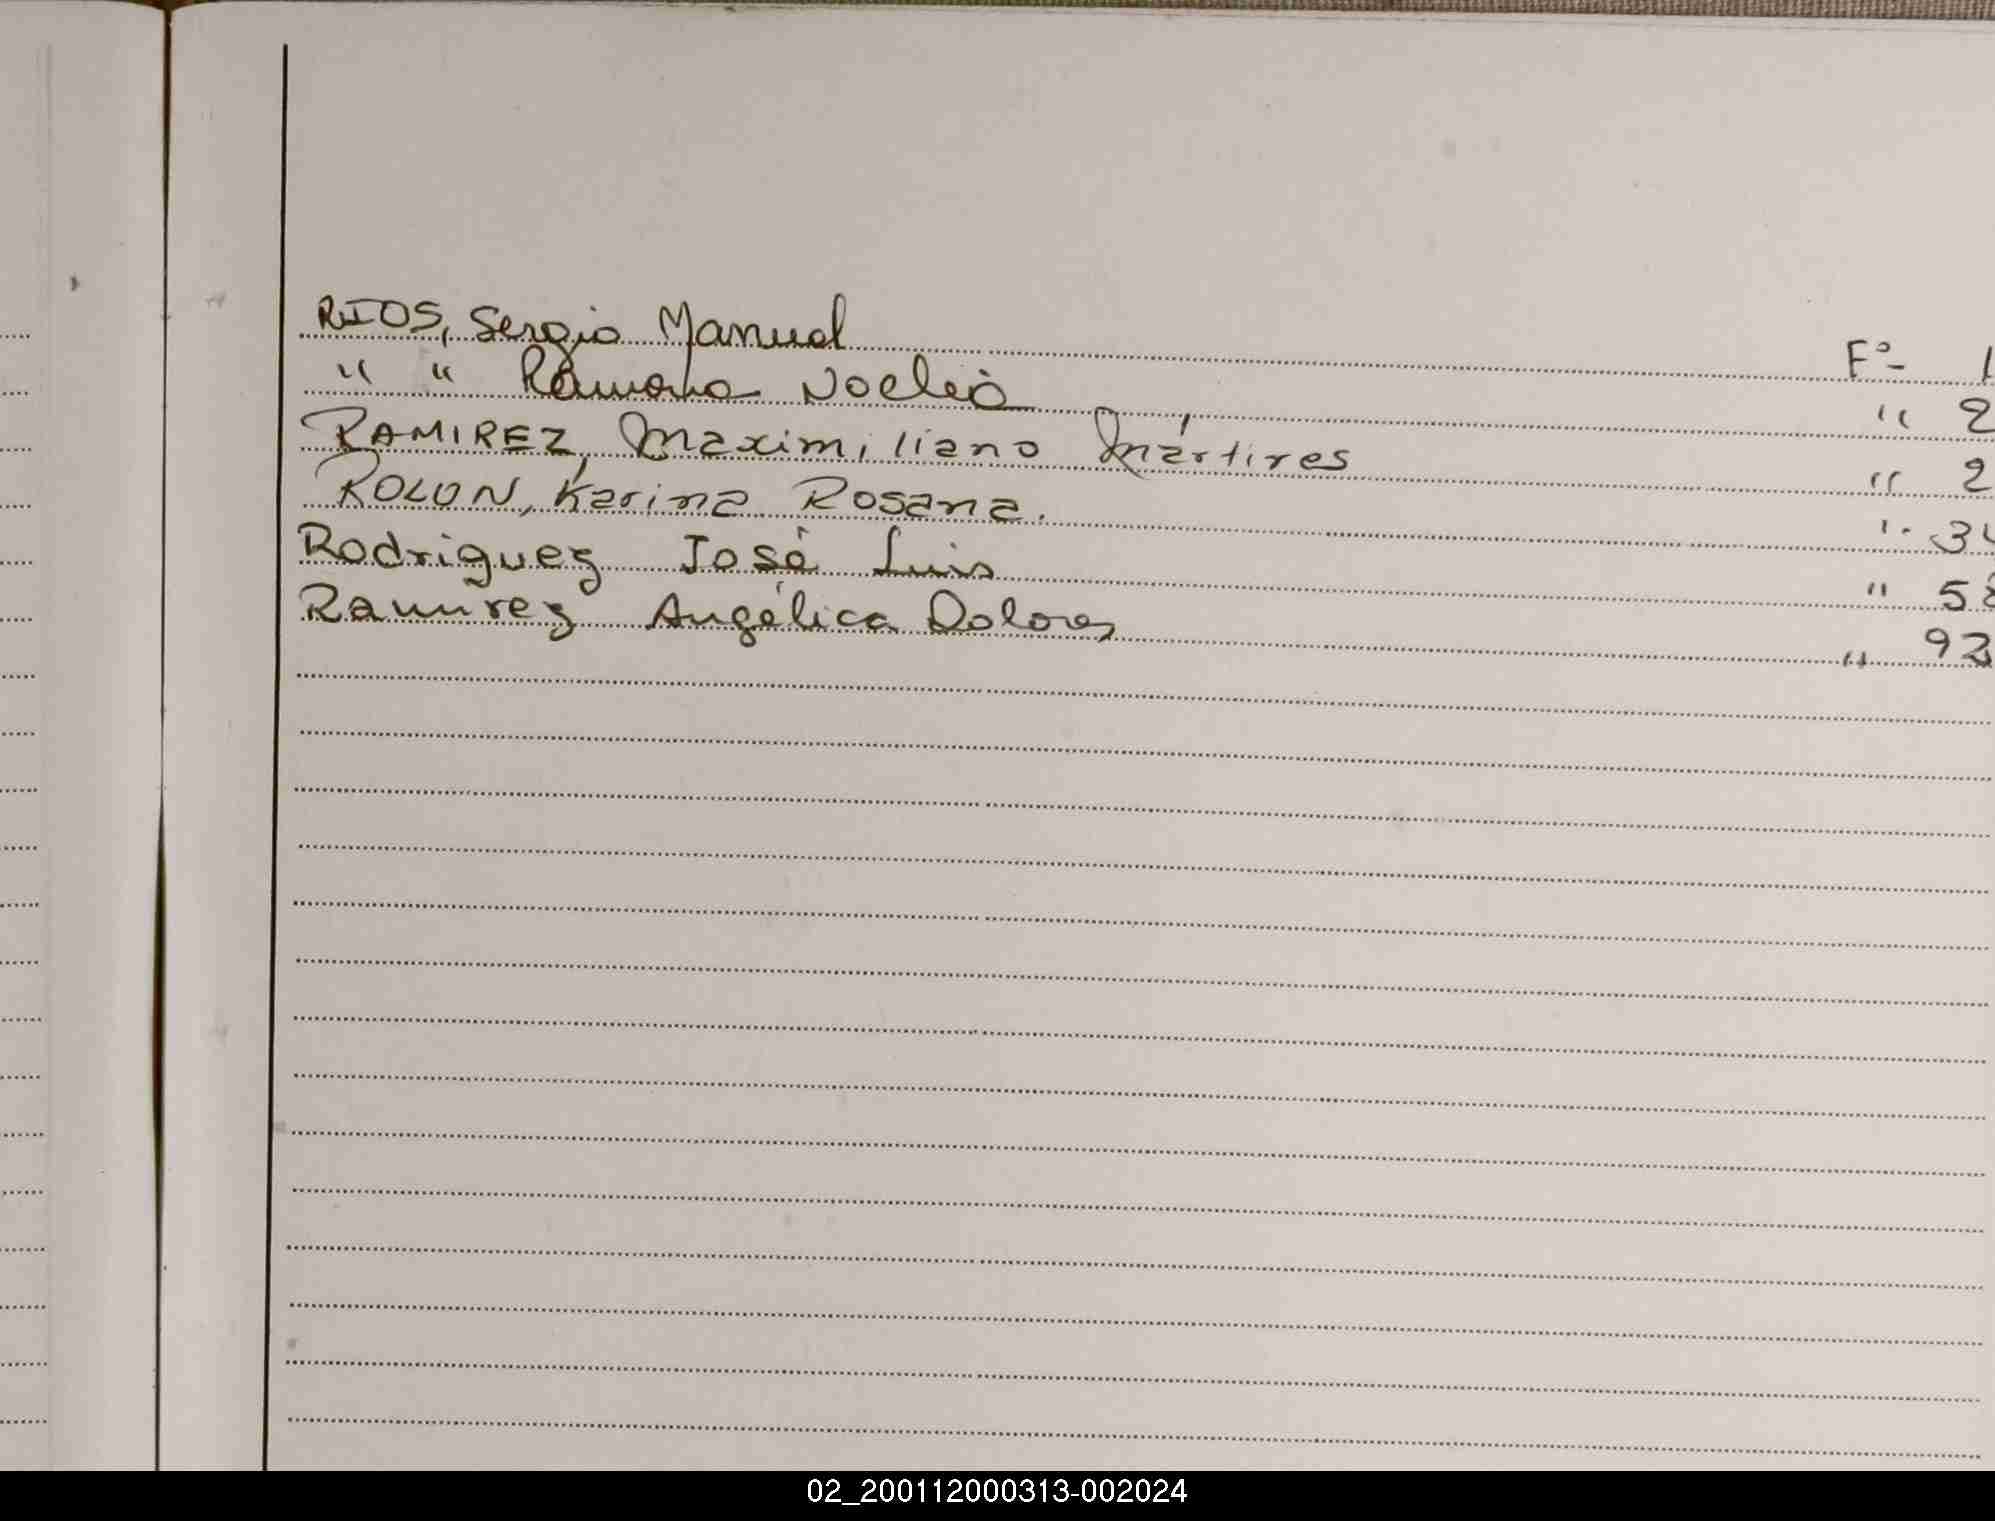 RIOS, Sergio Manuel F°- 1
" " Ramona Noelia " 2
RAMIREZ, Maximiliano Mártires " 2
ROLON, Karina Rosana. " 34
Rodriguez José Luis " 58
Ramirez Angélica Dolores " 92
02_200112000313-002024